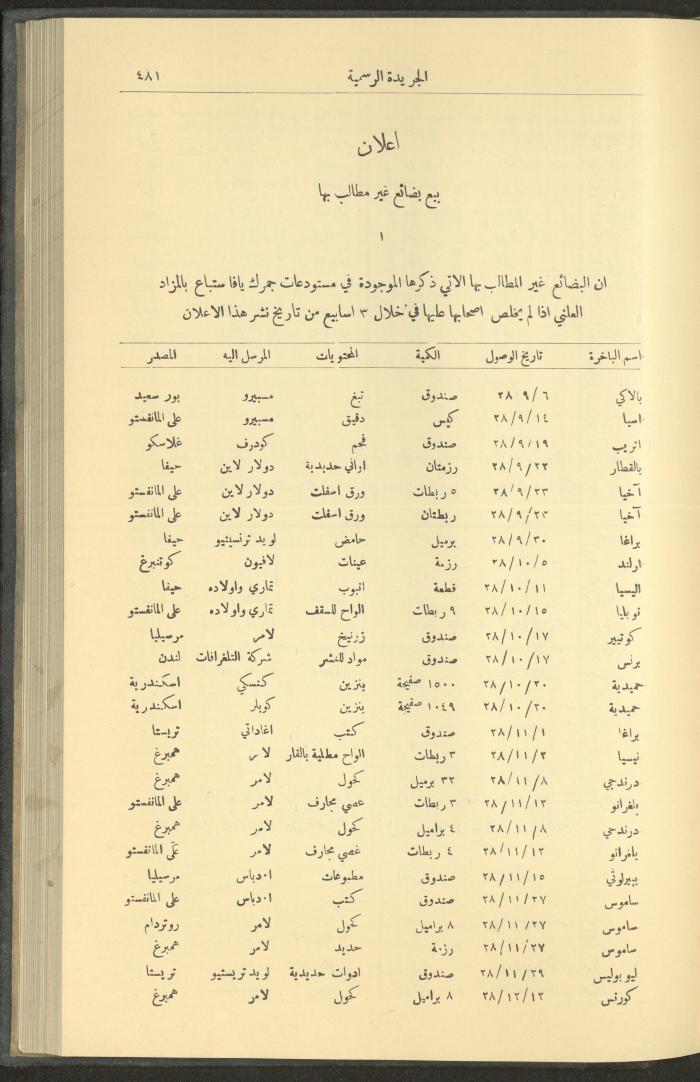 الجريدة الرسمية ٤٨١
اعلان
بيع بضائع غير مطالب بها
١
ان البضائع غير المطالب بها الاتي ذكرها الموجودة في مستودعات جمرك يافا ستباع بالمزاد
العلني اذا لم يخلص اصحابها عليها في خلال ٣ اسابيع من تاريخ نشر هذا الاعلان
اسم الباخرة تاريخ الوصول الكمية المحتويات المرسل اليه المصدر
بالاكي ٢٨ ٩/٦ صندوق تبغ مسبيرو بور سعيد
اسيا ٢٨/٩/١٤ كيس دقيق مسبيرو على المانفستو
اتريب ٢٨/٩/١٩ صندوق فحم كودرف غلاسكو
بالقطار ٢٨/٩/٢٢ رزمتان اواني حديدية دولار لاين حيفا
آخيا ٢٨/٩/٢٣ ٥ ربطات ورق اسفلت دولار لاين على المانفستو
آخيا ٢٨/٩/٢٣ ربطتان ورق اسفلت دولار لاين على المانفستو
براغا ٢٨/٩/٣٠ برميل حامض لويد ترنسيتيو حيفا
اولند ٢٨/١٠/٥ رزمة عينات لافيون كوتنبرغ
اليسيا ٢٨/١٠/١١ قطعة انبوب تماري واولاده حيفا
نوبليا ٢٨/١٠/١٥ ٩ ربطات الواح للسقف تماري واولاده على المانفستو
كوتيير ٢٨/١٠/١٧ صندوق زرنيخ لامر مرسيليا
برنس ٢٨/١٠/١٧ صندوق مواد للنشر شركة التلغرافات لندن
حميدية ٢٨/١٠/٢٠ ١٥٠٠ صفيحة بنزين كنسكي اسكندرية
حميدية ٢٨/١٠/٢٠ ١٠٤٩ صفيحة بنزين كوبلر اسكندرية
براغا ٢٨/١١/١ صندوق كتب اغاداتي تريستا
نيسيا ٢٨/١١/٢ ٣ ربطات الواح مطلية بالقار لامر همبرغ
درندجي ٢٨/١١/٨ ٣٢ برميل كحول لامر همبرغ
بلغرانو ٢٨/١١/١٢ ٣ ربطات عصي مجارف لامر على المانفستو
درندجي ٢٨/١١/٨ ٤ براميل كحول لامر همبرغ
بلغرانو ٢٨/١١/١٢ ٤ ربطات عصي مجارف لامر على المانفستو
بييرلوتي ٢٨/١١/١٥ صندوق مطبوعات ا٠دباس مرسيليا
ساموس ٢٨/١١/٢٧ صندوق كتب ا٠دباس على المانفستو
ساموس ٢٨/١١/٢٧ ٨ براميل كحول لامر روتردام
ساموس ٢٨/١١/٢٧ رزمة حديد لامر همبرغ
ليوبوليس ٢٨/١١/٢٩ صندوق ادوات حديدية لويد تريستيو تريستا
كورنس ٢٨/١٢/١٢ ٨ براميل كحول لامر همبرغ